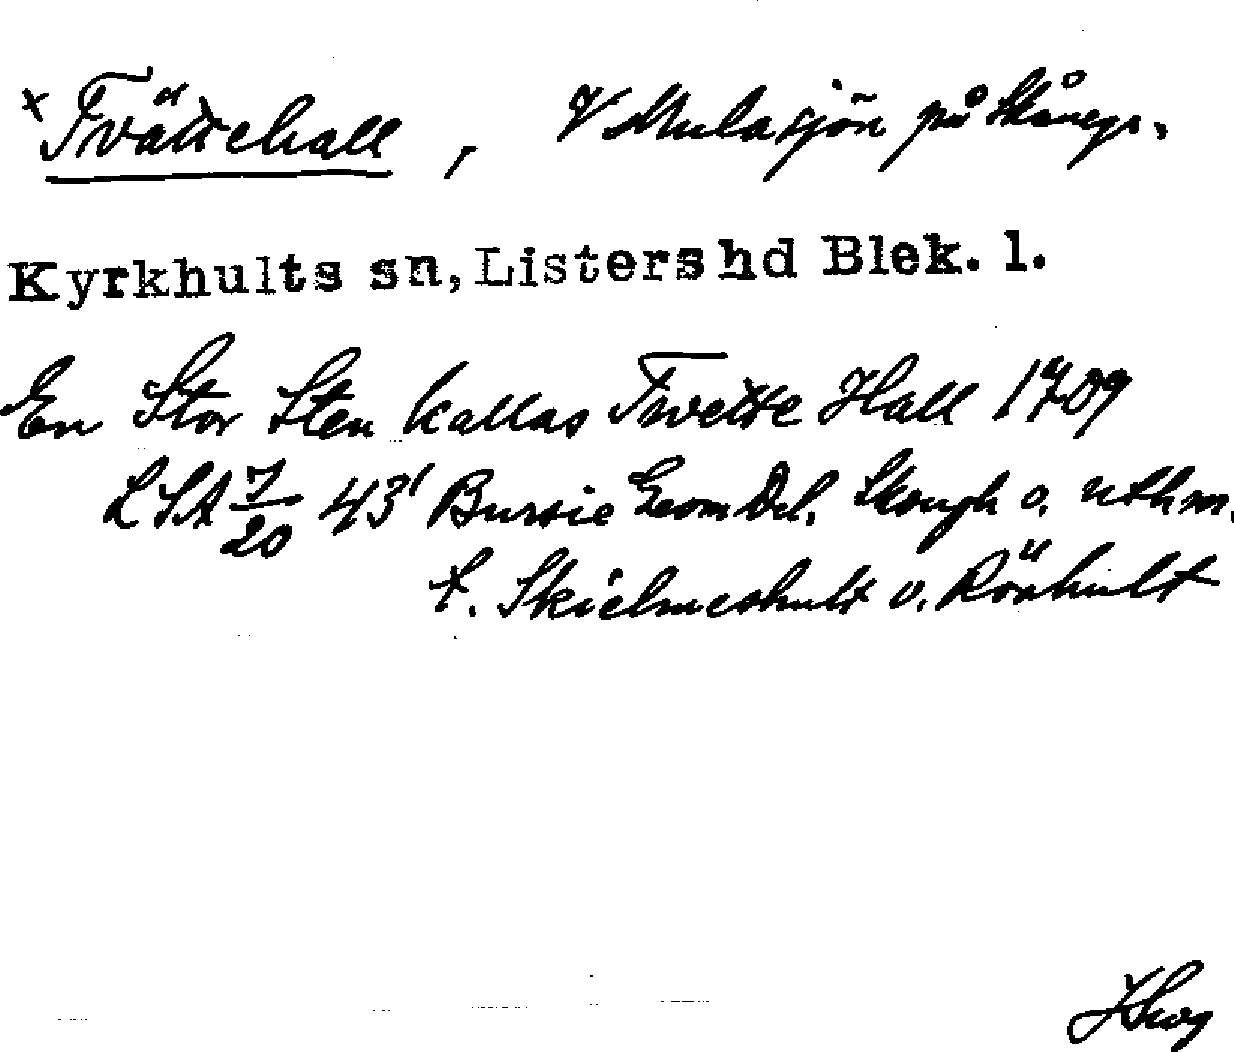 x Tvättehall, V Mulasjön på Skånegr.
Kyrkhults sn, Listers hd Blek. l.
En Stor Sten kallas Tvette Hall 1709
LSA 7/20 43' Geom Del. Skough o. uthm.
t. Skielmeshult o. Rörhult